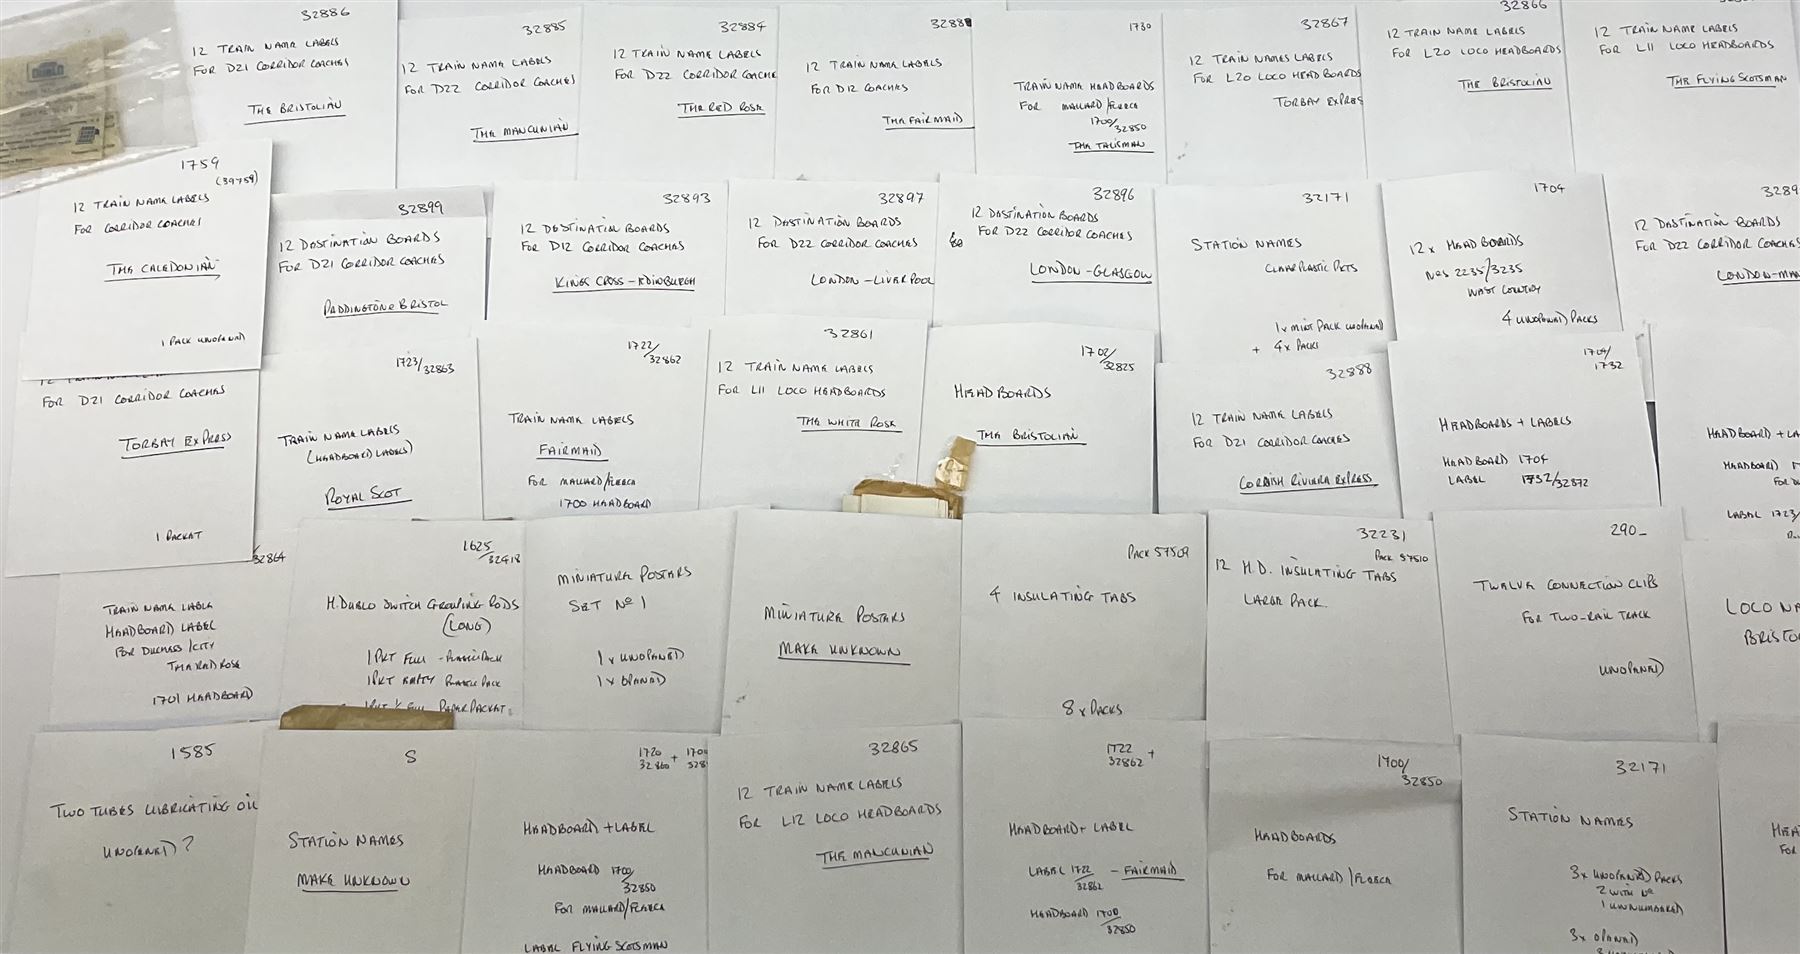 32886
12 TRAIN NAME LABELS
FOR D21 CORRIDOR COACHES
THE BRISTOLIAN
32885
12 TRAIN NAME LABELS
FOR D22 CORRIDOR COACHES
THE MANCUNIAN
32884
12 TRAIN NAME LABELS
FOR D22 CORRIDOR COACHE
THE RED ROSE
12 TRAIN NAME LABELS
FOR D12 COACHES
THE FAIRMAID
1730
TRAIN NAME HEADBOARDS
FOR MALLARD/FLEECE
1700/
32850
THE TALISMAN
32867
12 TRAIN NAMES LABELS
FOR L20 LOCO HEADBOARDS
TORBAY EXPRES
32866
12 TRAIN NAME LABELS
FOR L20 LOCO HEADBOARDS
THE BRISTOLIAN
12 TRAIN NAME LABELS
FOR L11 LOCO HEADBOARDS
THE FLYING SCOTSMAN
1759
(39759)
12 TRAIN NAME LABELS
FOR CORRIDOR COACHES
THE CALEDONIAN
1 PACK UNOPENED
32899
12 DESTINATION BOARDS
FOR D21 CORRIDOR COACHES
PADDINGTON BRISTOL
32893
12 DESTINATION BOARDS
FOR D12 CORRIDOR COACHES
KINGS CROSS - EDINBURGH
32897
12 DESTINATION BOARDS
FOR D22 CORRIDOR COACHES
LONDON - LIVERPOOL
32896
12 DESTINATION BOARDS
FOR D22 CORRIDOR COACHES
LONDON - GLASGOW
32171
STATION NAMES
CLEAR PLASTIC PKTS
1 x MINT PACK UNOPENED
+ 4x PACKS
1704
12 x HEADBOARDS
Nos 2235/3235
WEST COUNTRY
4 UNOPENED PACKS
3289
12 DESTINATION BOARDS
FOR D22 CORRIDOR COACHES
LONDON - MAN
FOR D21 CORRIDOR COACHES
TORBAY EXPRESS
1 PACKET
1723/32863
TRAIN NAME LABELS
(HEADBOARD LABELS)
ROYAL SCOT
1722/
32862
TRAIN NAME LABELS
FAIRMAID
FOR MALLARD/FLEECE
1700 HEADBOARD
32861
12 TRAIN NAME LABELS
FOR L11 LOCO HEADBOARDS
THE WHITE ROSE
1702/
32825
HEADBOARDS
THE BRISTOLIAN
32888
12 TRAIN NAME LABELS
FOR D21 CORRIDOR COACHES
CORNISH RIVIERA EXPRESS
1704/
1732
HEADBOARDS + LABELS
HEADBOARD 1704
LABEL 1732/32872
HEADBOARD + LA
HEADBOARD 1
FOR DU
LABEL 1723/
/32864
TRAIN NAME LABEL
HEADBOARD LABEL
FOR DUCHESS/CITY
THE RED ROSE
1701 HEADBOARD
1625
/32418
H. DUBLO SWITCH GROUPING RODS
(LONG)
1 PKT FULL - PLASTIC PACK
1 PKT EMPTY PLASTIC PACK
1 PKT ½ FULL PAPER PACKET
MINIATURE POSTERS
SET No 1
1 x UNOPENED
1 x OPENED
MINIATURE POSTERS
MAKE UNKNOWN
PACK 57509
4 INSULATING TABS
8 x PACKS
32231
PACK 57510
12 H.D. INSULATING TABS
LARGE PACK.
290_
TWELVE CONNECTION CLIPS
FOR TWO-RAIL TRACK
UNOPENED
LOCO NA
BRISTO
1585
TWO TUBES LUBRICATING OIL
UNOPENED?
S
STATION NAMES
MAKE UNKNOWN
1720 + 1700
32860 328
HEADBOARD + LABEL
HEADBOARD 1700/
32850
FOR MALLARD/FLEECE
LABEL FLYING SCOTSMAN
32865
12 TRAIN NAME LABELS
FOR L12 LOCO HEADBOARDS
THE MANCUNIAN
1722 +
32862
HEADBOARD + LABEL
LABEL 1722 - FAIRMAID
32862
HEADBOARD 1700
32850
1700/
32850
HEADBOARDS
FOR MALLARD/FLEECE
32171
STATION NAMES
3x UNOPENED PACKS
2 WITH No
1 UNNUMBERED
3x OPENED
HEA
FOR